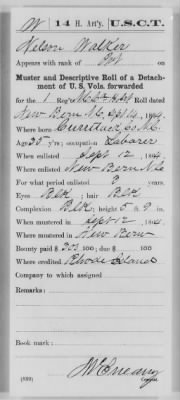 W | 14 H. Art'y. | U.S.C.T.
Nelson Walker
Appears with rank of Pvt on
Muster and Descriptive Roll of a Detach-
ment of U. S. Vols. forwarded
for the 1 Reg't Roll dated
New Bern N.C. Sept 14, 1864.
Where born Currituck Co N.C.
Age 35 y'rs; occupation Laborer
When enlisted Sept 12, 1864.
Where enlisted New Bern N.C.
For what period enlisted 3 years.
Eyes Blk; hair Blk
Complexion Blk; height 5 ft. 9 in.
When mustered in Sept 12, 1864.
Where mustered in New Bern
Bounty paid $ 100; due $ 100
Where credited Rhode Island
Company to which assigned
Remarks:
Book mark:
(339)
Copyist.